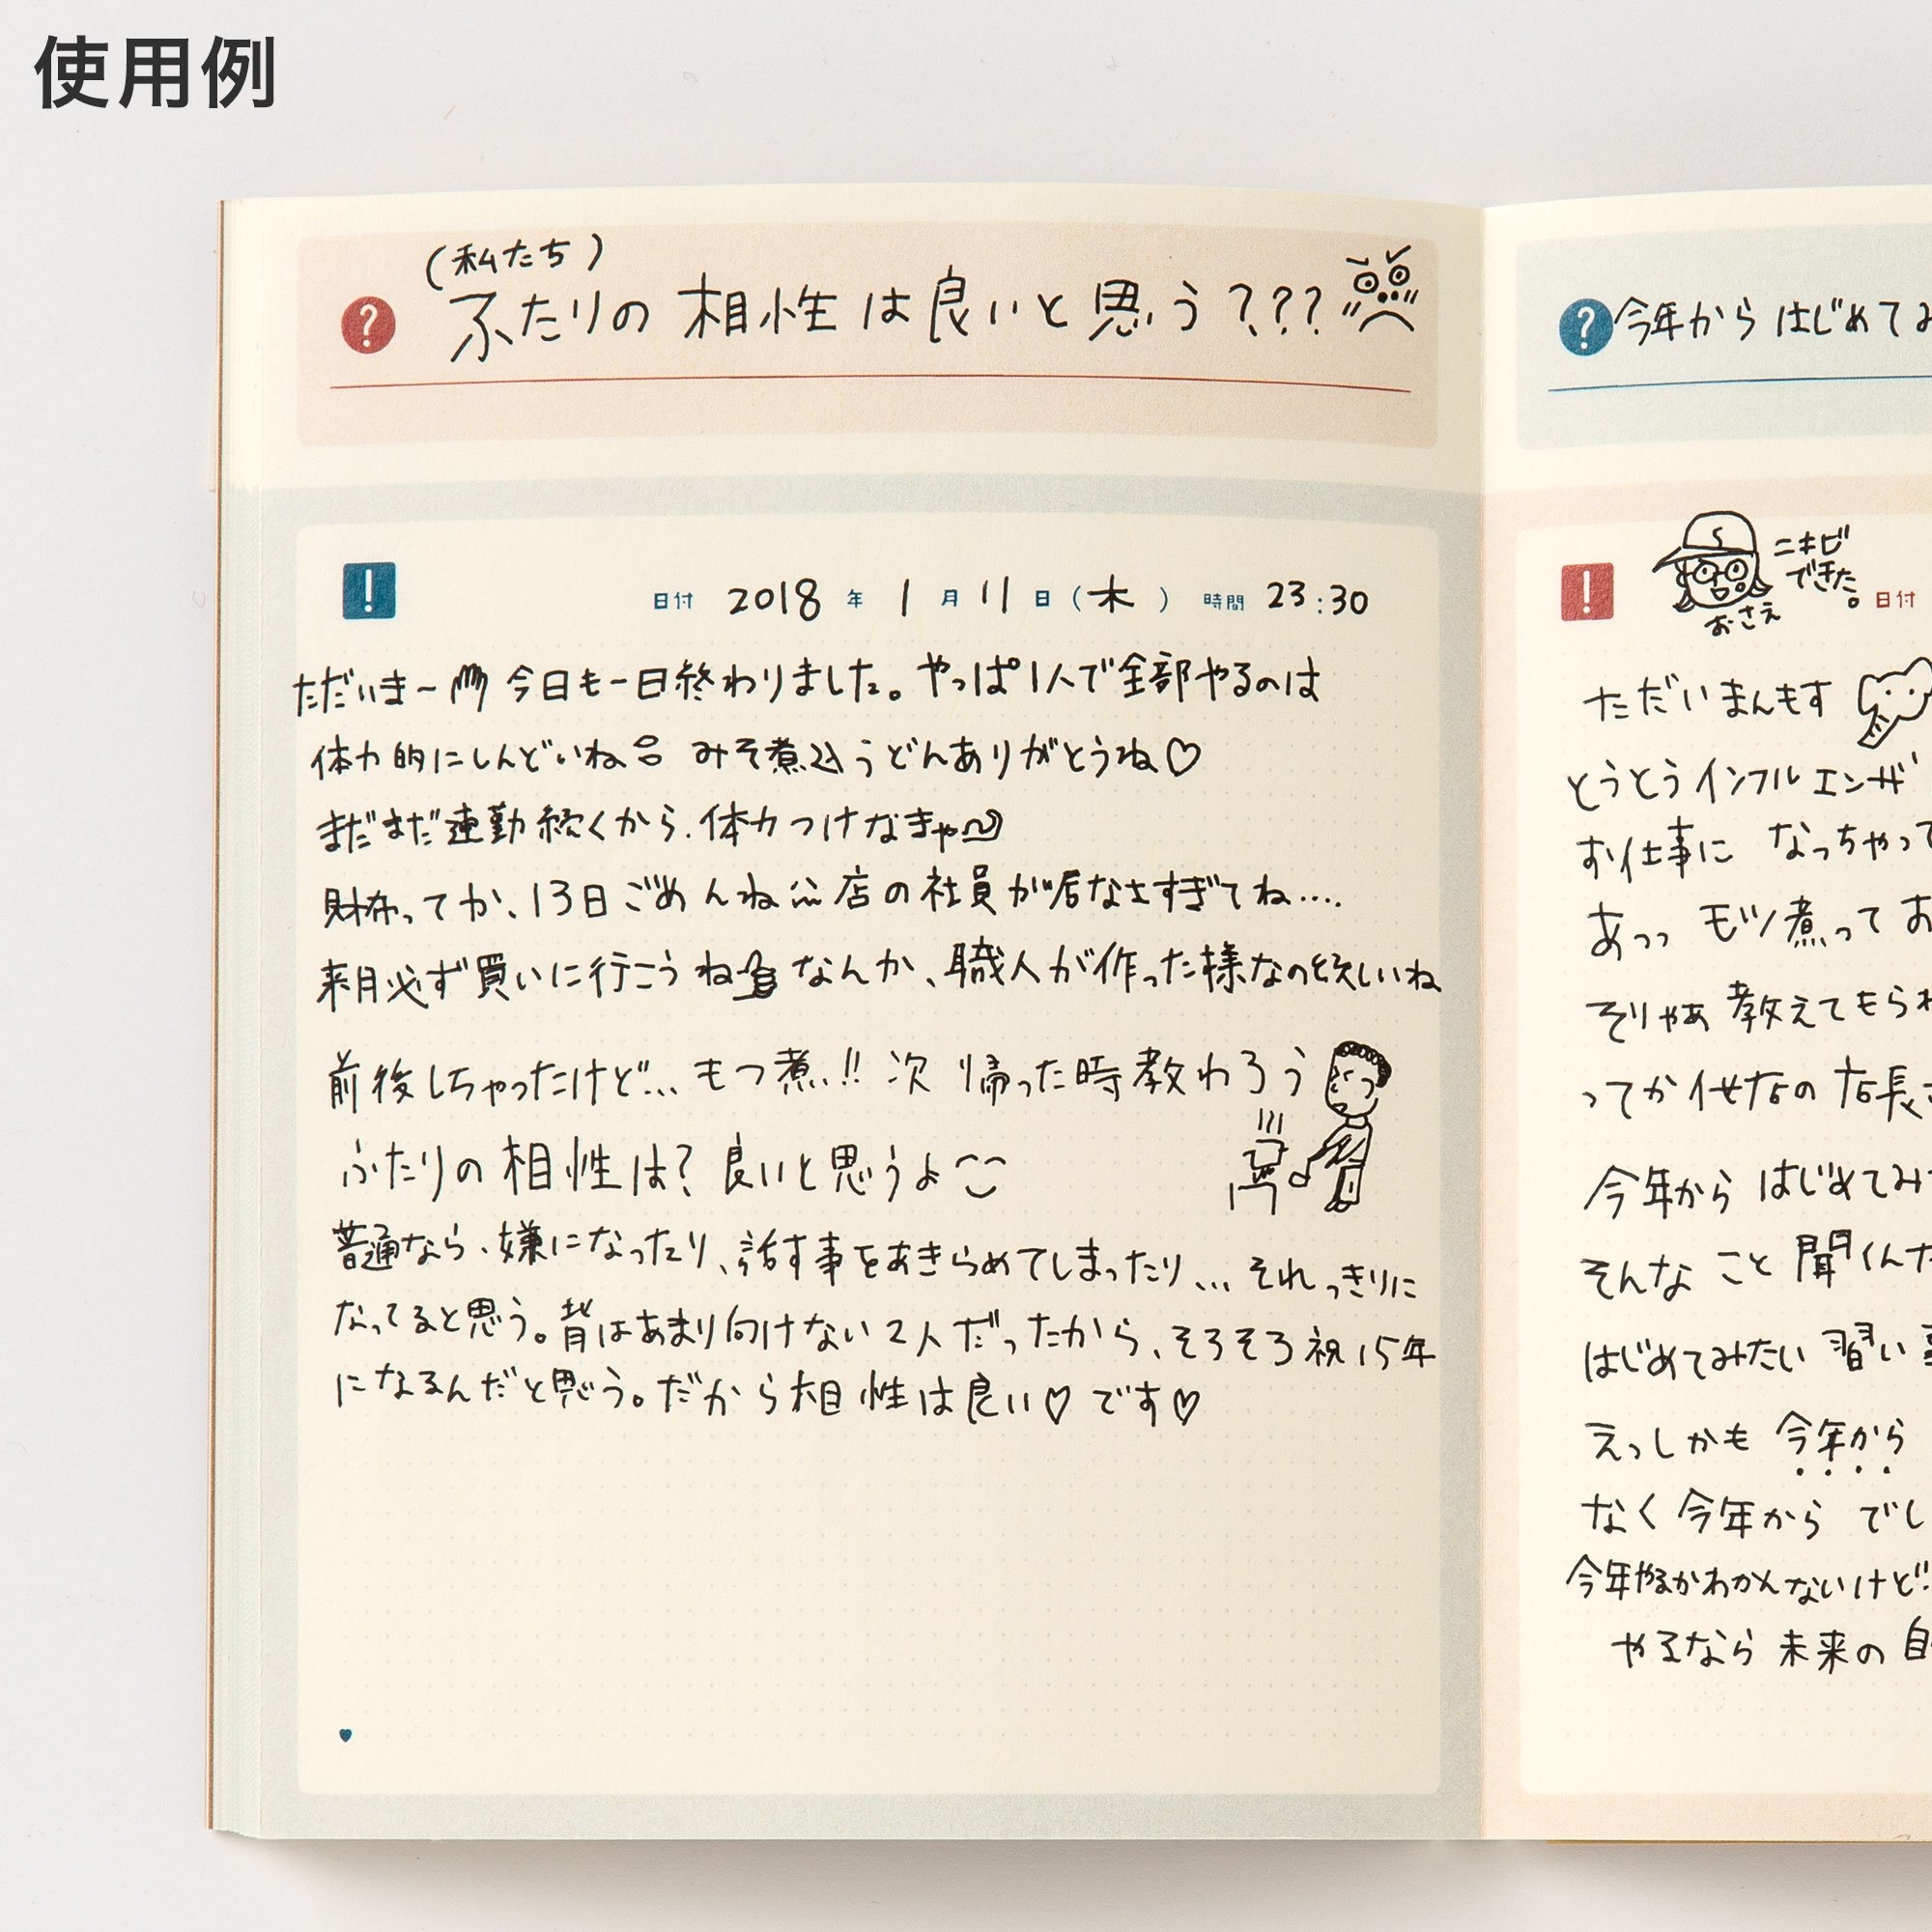 使用例
(私たち)
ふたりの相性は良いと思う???
日付 2018 年 1 月 11 日 (木) 時間 23:30
ただいま～ 今日も一日終わりました。やっぱ1人で全部やるのは
体力的にしんどいね。 みそ煮込うどんありがとうね♡
まだまだ連勤続くから、体力つけなきゃ
財布ってか、13日ごめんね 店の社員が居なさすぎてね....
来月必ず買いに行こうね なんか、職人が作った様なの欲しいね
前後しちゃったけど... もつ煮!! 次帰った時教わろう
ふたりの相性は? 良いと思うよ
普通なら、嫌になったり、話す事をあきらめてしまったり... それっきりに
なってると思う。背はあまり向けない2人だったから、そろそろ祝15年
になるんだと思う。だから相性は良い♡です♡
? 今年からはじめてみ
! ニキビ
できた。
おさえ
日付
ただいまんもす
とうとうインフルエンザ
お仕事に なっちゃって
あっっ モツ煮って お
そりゃあ 教えてもらわ
ってか 他店の 店長さ
今年から はじめてみ
そんな こと 聞くんだ
はじめてみたい 習い事
えっしかも 今年から
なく 今年から でし
今年やるかわかんないけど
やるなら 未来の 自